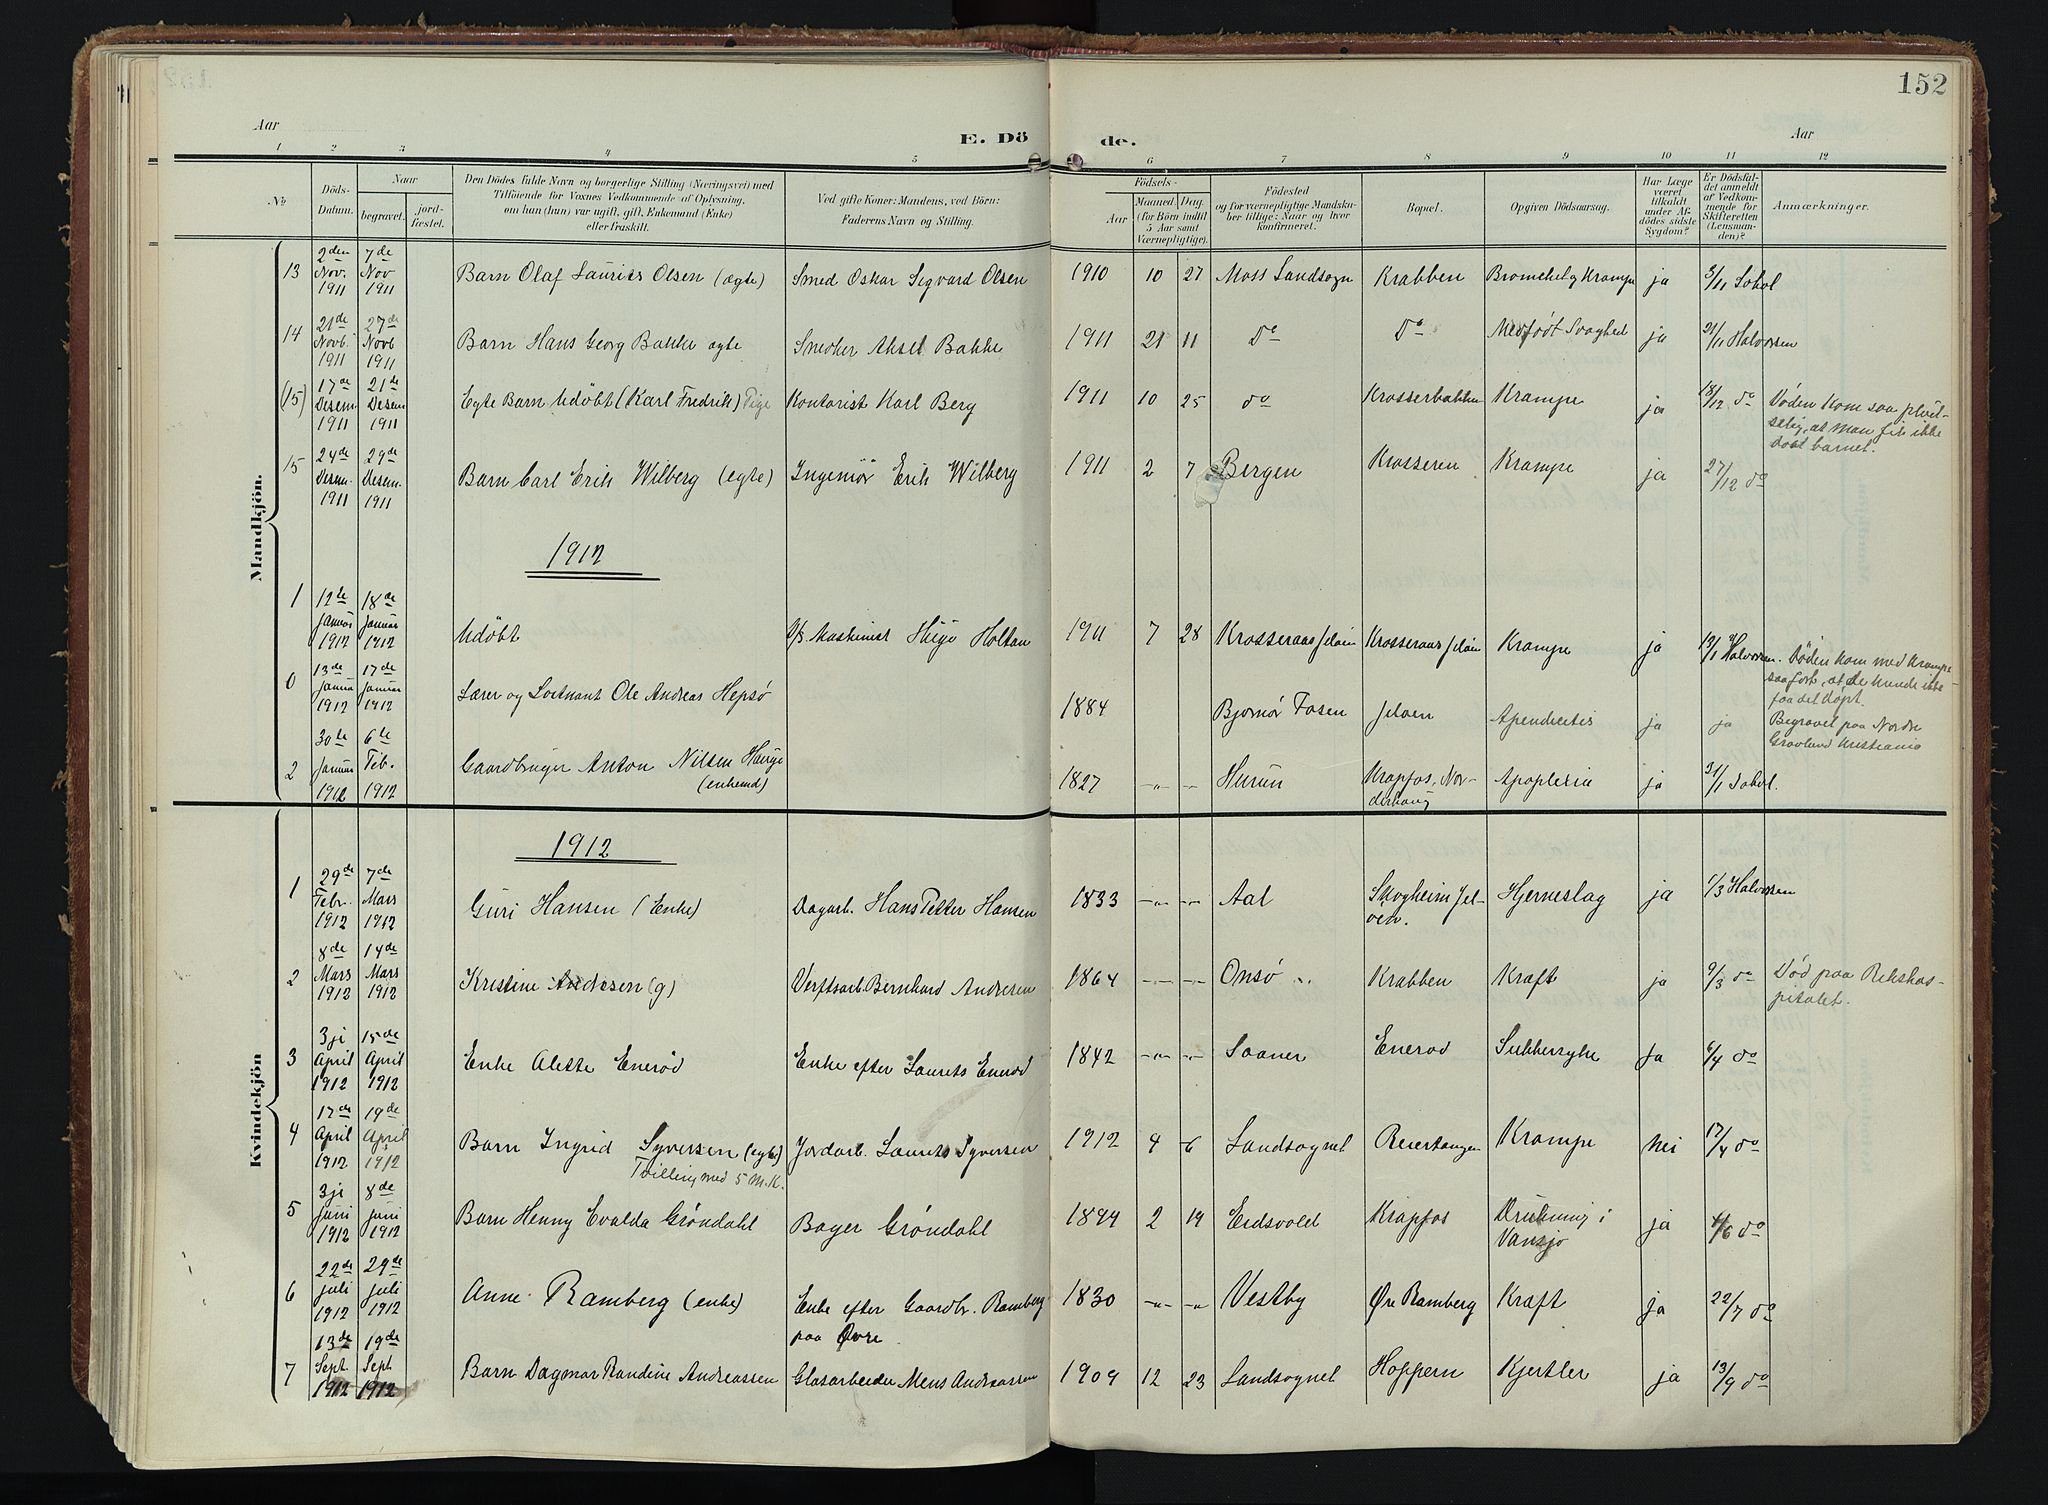 152
Aar
E. Dö
de.
Aar
1 2 3 4 5 6 7 8 9 10 11 12
No
Döds-Datum.
Naar
begravet.
jord-fæstet.
Den Dödes fulde Navn og borgerlige Stilling (Næringsvei) med
Tilföiende for Voxnes Vedkommende af Oplysning,
om han (hun) var ugift, gift, Enkemand (Enke)
eller fraskilt.
Ved gifte Koner: Mandens, ved Börn:
Faderens Navn og Stilling.
Födsels-
Aar
Maaned (for Börn indtil 5 Aar samt Værnepligtige).
Dag.
Födested
og for værnepligtige Mandskaber tillige: Naar og hvor konfirmeret.
Bopæl.
Opgiven Dödsaarsag.
Har Læge været tilkaldt under Afdödes sidste Sygdom?
Er Dödsfaldet anmeldt af Vedkommende for Skifteretten (Lensmanden)?
Anmærkninger.
Mandkjön.
13 2den Nov. 1911 7de Nov 1911 Barn Olaf Laurits Olsen (ægte) Smed Oskar Sigvard Olsen 1910 10 27 Moss Landsogn Krabben Bronchel og Krampe ja 3/11 Sohol
14 21de Novb. 1911 27de Novb 1911 Barn Hans Georg Bakke ægte Snedker Aksel Bakke 1911 21 11 Do Do Medfødt Svaghed ja 21/11 Halvorsen
(15) 17de Desem. 1911 21de Desem 1911 Egte Barn Udøbt (Karl Fredrik) Pige Kontorist Karl Berg 1911 10 25 do Krosserbakken Krampe ja 18/12 do Døden kom saa plud-
selig, at man fik ikke
døbt barnet.
15 24de Desem. 1911 29de Desem. 1911 Barn Carl Erik Wilberg (egte) Ingeniør Erik Wilberg 1911 2 7 Bergen Krosseren Krampe ja 27/12 do
1912
1 12te Januar 1912 18de Januar 1912 Udøbt Maskinist Hugo Holtan 1911 7 28 Krosseraas Jeløen Krosseraas Jeløen Krampe ja 13/1 Halvorsen. Døden kom med Krampe
saa fort, at de kunde ikke
faa det døpt.
0 13de Januar 1912 17de Januar 1912 Lærer og Loitnant Ole Andreas Hepsø 1884 Bjørnør Fosen Jeløen Apendicitis ja ja Begravet paa Nordre
Gravlund Kristiania
2 30te Januar 1912 6te Feb. 1912 Gaardbruger Anton Nilsen Hauge
(enkemd) 1827 -"- -"- Hurum Krapfos, Nor-
derhaug Apoplexia ja 31/1 Sohol.
Kvindekjön
1912
1 29de Febr. 1912 7de Mars 1912 Guri Hansen (Enke) Dagarb. Hans Petter Hansen 1833 -"- -"- Aal Skogheim Jel-
øen. Hjerneslag ja 1/3 Halvorsen
2 8de Mars 1912 14de Mars 1912 Kristine Andresen (g) Verftsarb. Bernhard Andresen 1864 -"- -"- Onsø Krabben Kraft ja 9/3 do Død paa Rikshos-
pitalet.
3 3ji April 1912 15de April 1912 Enke Alette Enerød Enke efter Laurits Enerød 1842 -"- -"- Saaner Enerød Sukkersyke Ja 6/4 do
4 17de April 1912 19de April 1912 Barn Ingrid Syversen (egte)
Tvilling med 5 M.K. Jordarb. Laurits Syversen 1912 4 6 Landsognet Reiertangen Krampe Nei 17/4 do
5 3ji Juni 1912 8de Juni 1912 Barn Henny Evalda Grøndahl Bager Grøndahl 1899 2 19 Eidsvold Krapfos Drukning i
Vansjø ja 4/6 do
6 22de Juli 1912 29de Juli 1912 Anne Ramberg (enke) Enke efter Gaardbr. Ramberg
paa Øvre 1830 -"- -"- Vestby Øre Ramberg Kraft ja 22/7 do
7 13de Sept. 1912 19de Sept 1912 Barn Dagmar Randine Andreassen Glasarbeider Mens Andreassen 1909 12 23 Landsognet Hoppern Kjertler ja 13/9 do